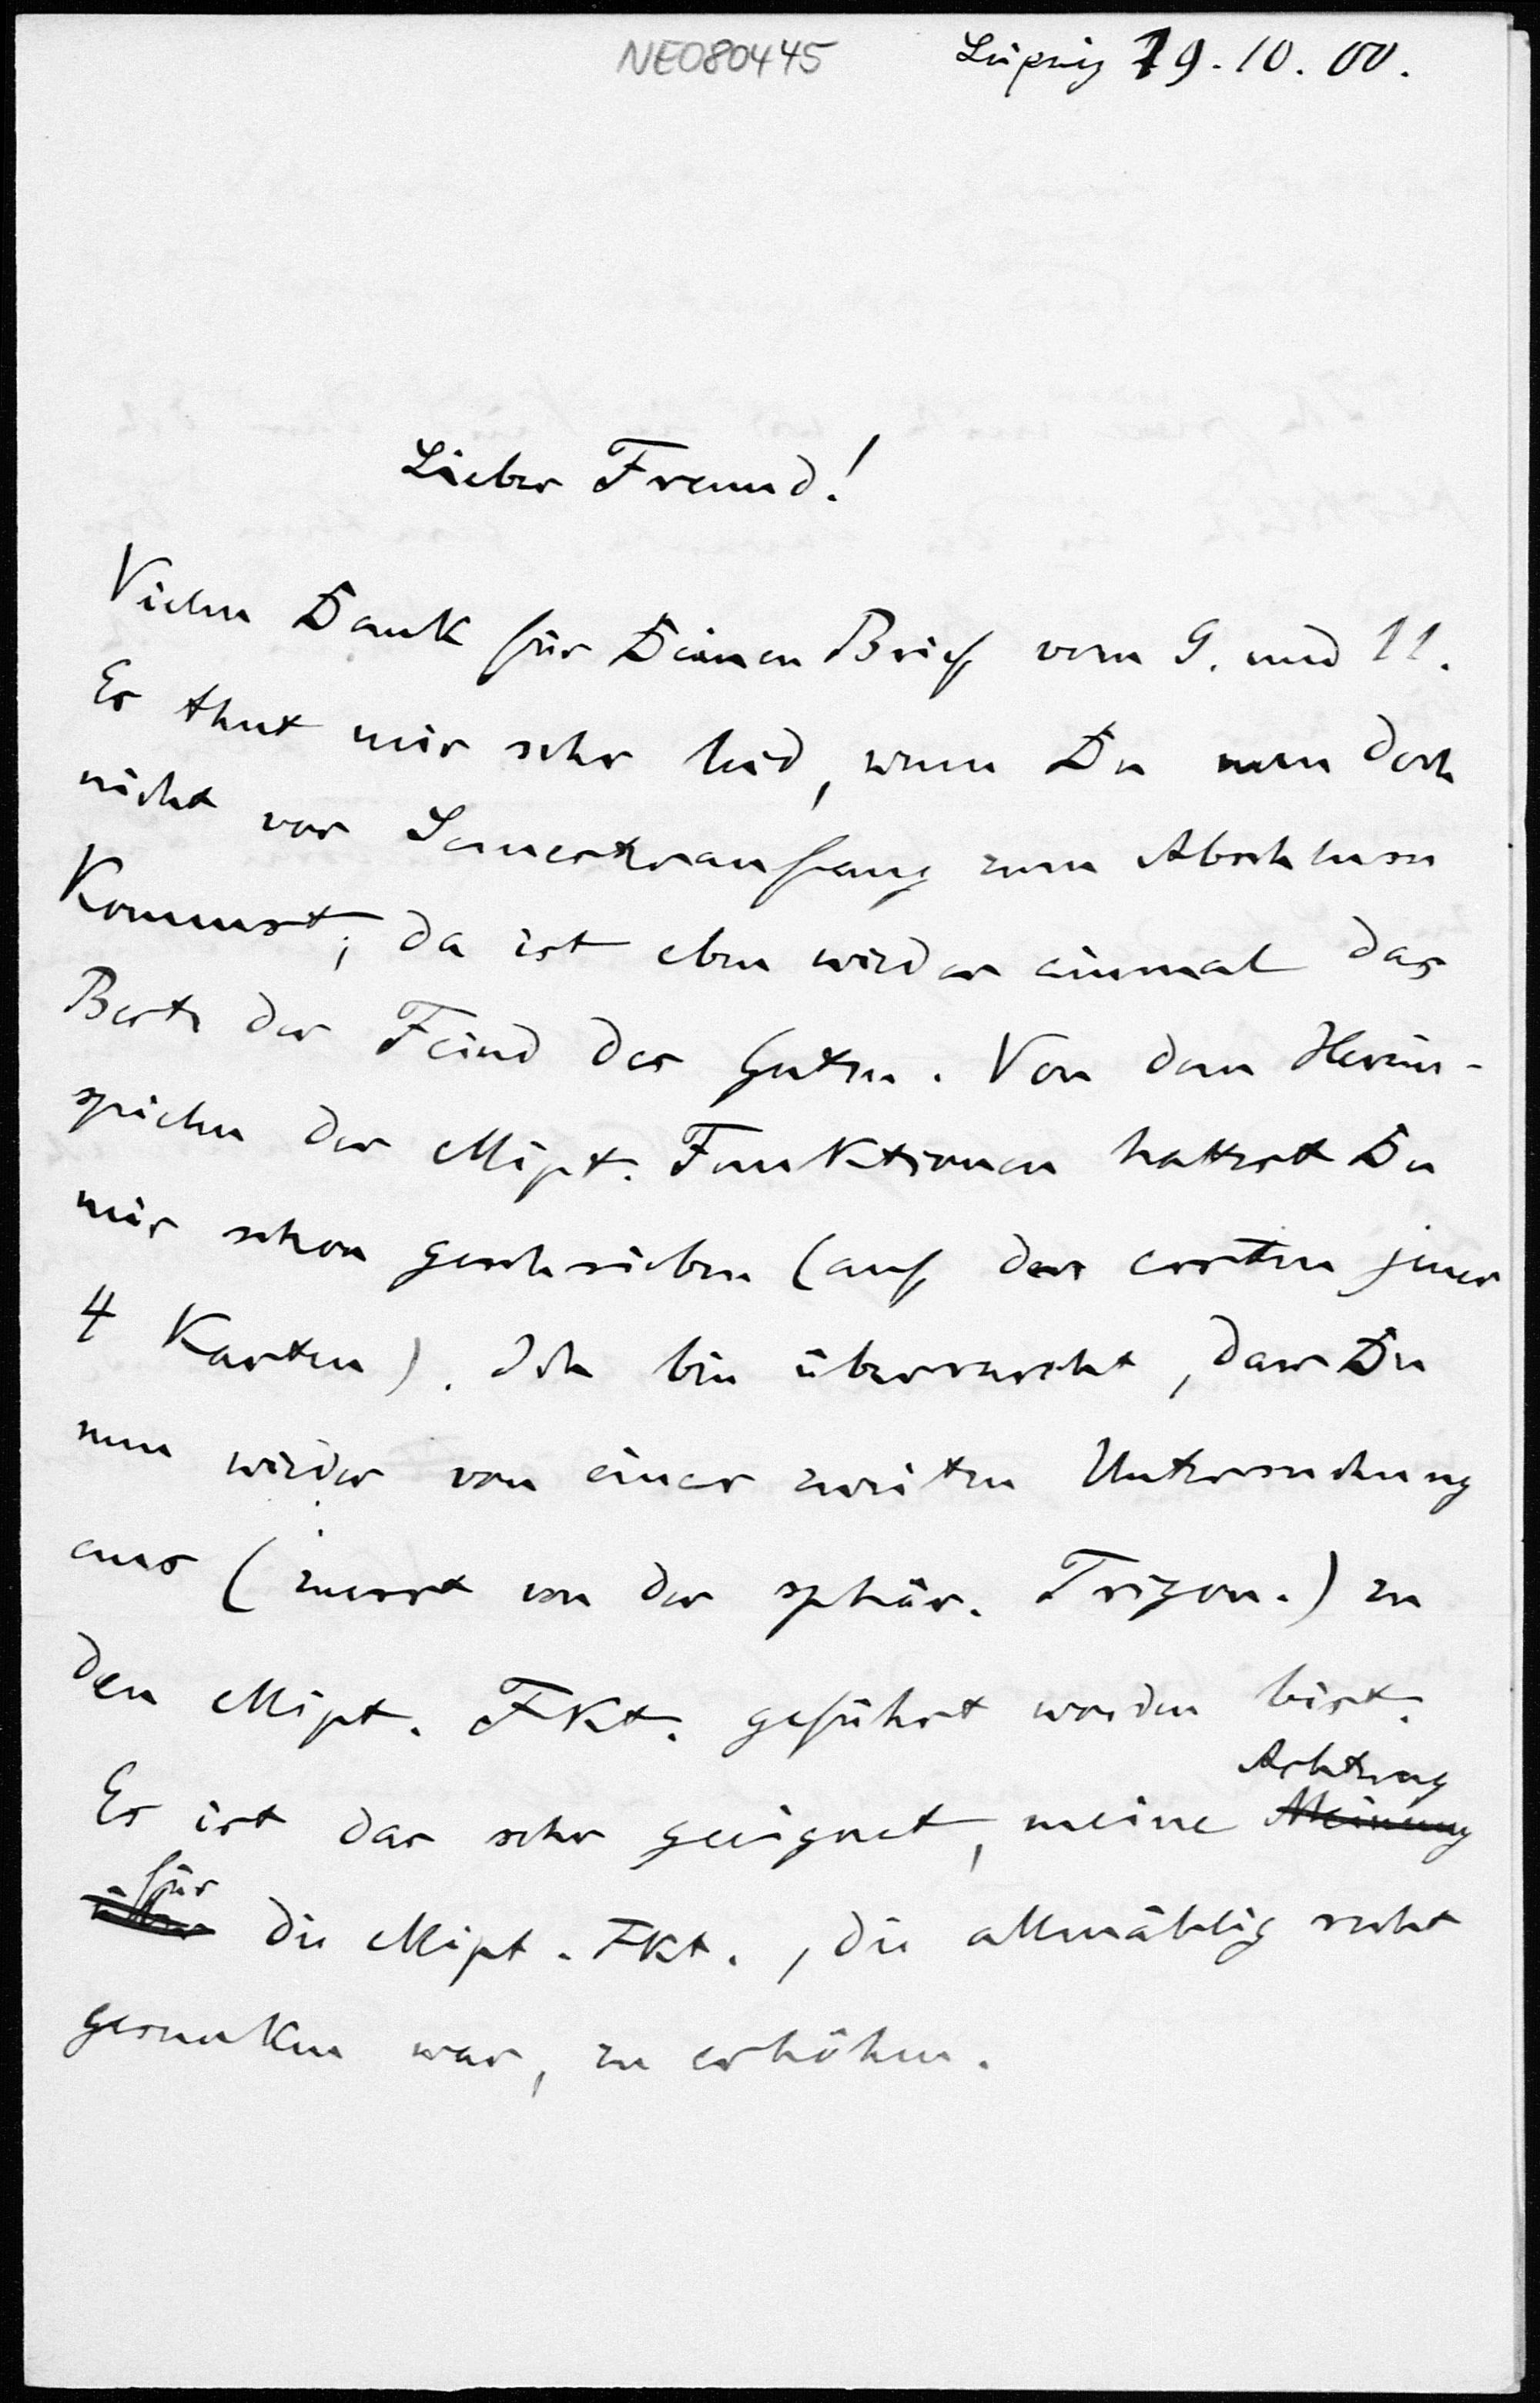 NE080445 Leipzig 19.10.00.
Lieber Freund!
Vielen Dank für Deinen Brief vom 9. und 11.
Es thut mir sehr leid, wenn Du nun doch
nicht vor Semesteranfang zum Abschluss
kommst; da ist eben wieder einmal das
Beste der Feind des Guten. Von dem Herein-
spielen der Mlpt. Funktionen hattest Du
mir schon geschrieben (auf der ersten jener
4 Karten). Ich bin überrascht, dass Du
nun wieder von einer zweiten Untersuchung
aus (zuerst von der sphär. Trigon.) zu
den Mlpt. Fkt. geführt worden bist.
Achtung
Es ist das sehr geeignet, meine Meinung
für
über die Mlpt. Fkt., die allmählig recht
gesunken war, zu erhöhen.